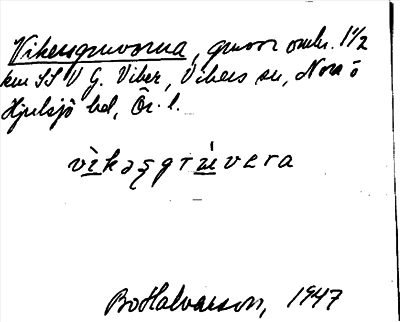 Vikersgruvorna, gruvor omkr. 1 1/2
km SSV G. Viker, Vikers sn, Nora o
Hjulsjö bel, Ör. l.
vikəşgrʉvera
Bo Halvarson, 1947